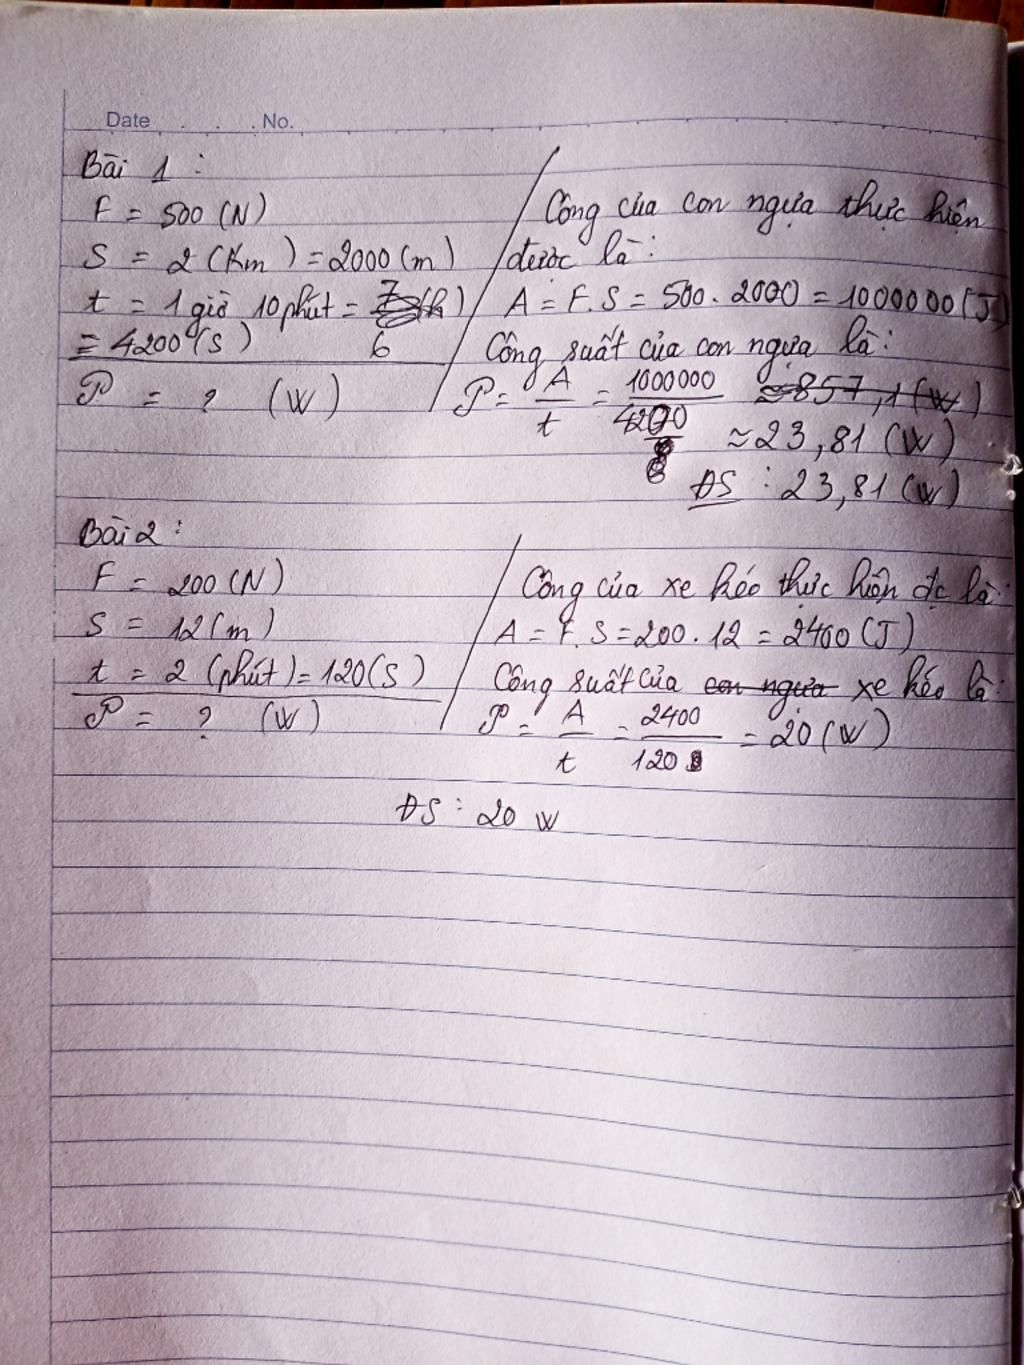 Date . . . . No.
Bài 1 :
F = 500 (N)
S = 2 (Km) = 2000 (m)
t = 1 giờ 10 phút =
= 4200 (s)
P = ? (W)
Công của con ngựa thực hiện
được là:
A = F.S = 500. 2000 = 1000000 (J)
Công suất của con ngựa là:
P = A/t = 1000000/4200 ≈ 857,1 (W)
≈ 23,81 (W)
ĐS : 23,81 (W)
Bài 2 :
F = 200 (N)
S = 12 (m)
t = 2 (phút) = 120 (s)
P = ? (W)
Công của xe kéo thực hiện đc là:
A = F. S = 200. 12 = 2400 (J)
Công suất của con ngựa xe kéo là:
P = A/t = 2400/120 = 20 (W)
ĐS : 20 W